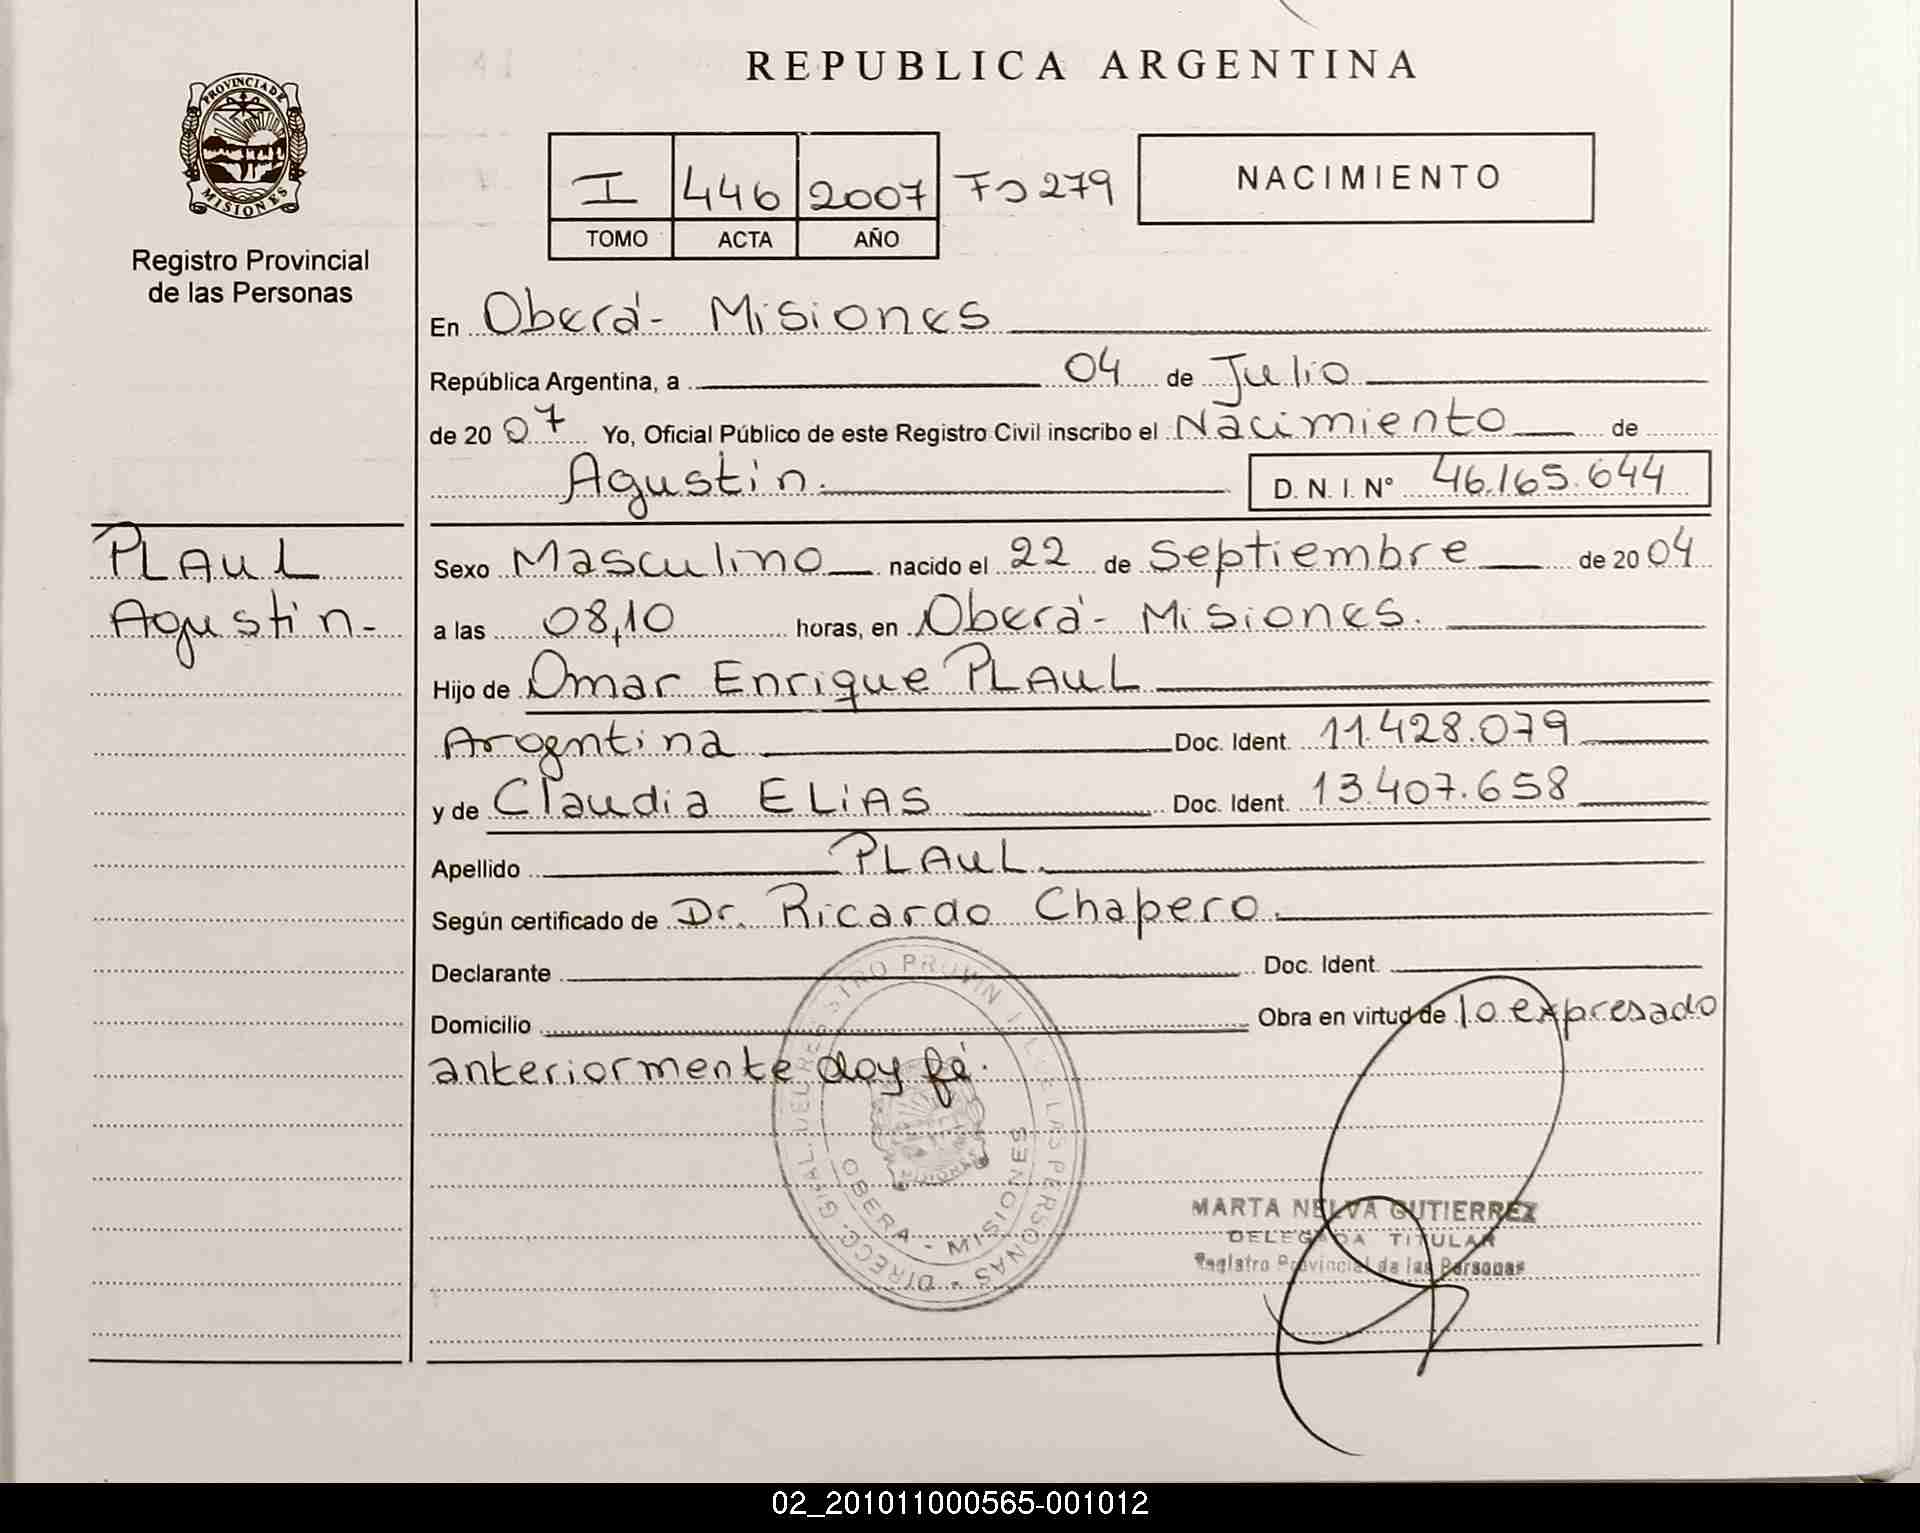 REPUBLICA ARGENTINA
PROVINCIA DE
MISIONES
Registro Provincial
de las Personas
I 446 2007 Fº 279
TOMO ACTA AÑO
NACIMIENTO
En Oberá - Misiones
República Argentina, a 04 de Julio
de 20 07 Yo, Oficial Público de este Registro Civil inscribo el Nacimiento de
Agustin. D. N. I. Nº 46.165.644
PLAUL
Agustin -
Sexo Masculino nacido el 22 de Septiembre de 20 04
a las 08,10 horas, en Oberá - Misiones.
Hijo de Omar Enrique PLAUL
Argentina Doc. Ident. 11.428.079
y de Claudia ELiAS Doc. Ident. 13.407.658
Apellido PLAUL.
Según certificado de Dr. Ricardo Chapero.
Declarante Doc. Ident.
Domicilio Obra en virtud de lo expresado
anteriormente doy fé.
DIRECC. GRAL. DEL REGISTRO PROVIN DE LAS PERSONAS -
OBERA - MISIONES
MARTA NELVA GUTIERREZ
DELEGADA TITULAR
Registro Provincial de las Personas
02_201011000565-001012